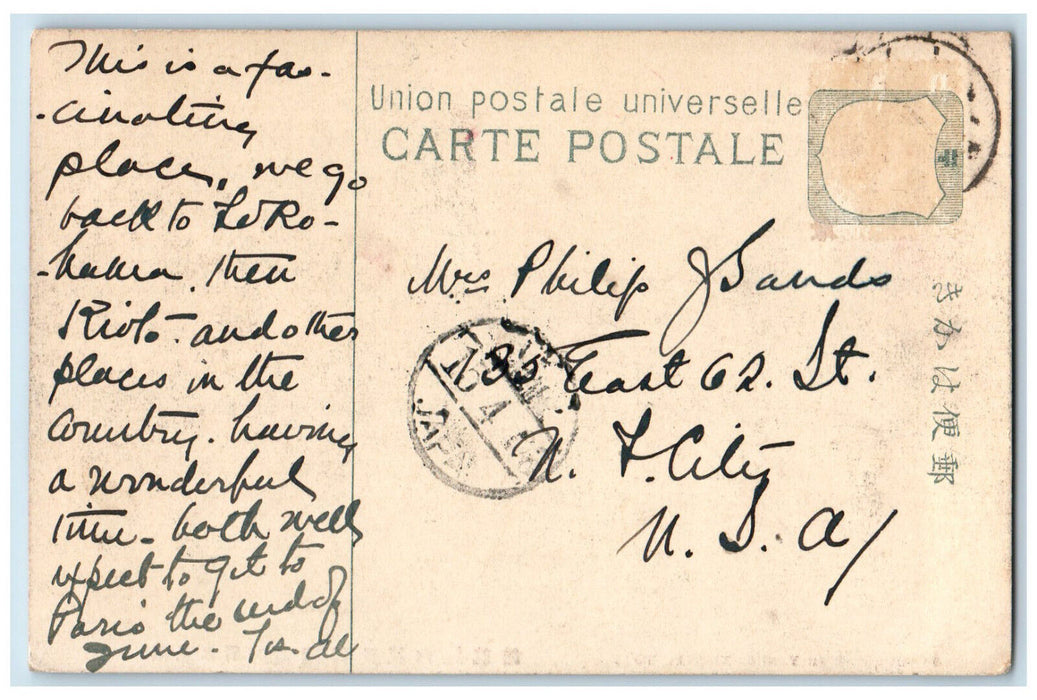 This is a fas-
-cinating
place, we go
back to Yoko-
-hama, then
Kioto - and other
places in the
country. having
a wonderful
time - both well
expect to get to
Paris the end of
June.
Union postale universelle
CARTE POSTALE
Mrs Philip J Sands
135 East 62. St.
N. Y. City
U. S. A/
JAPAN
きがは便郵